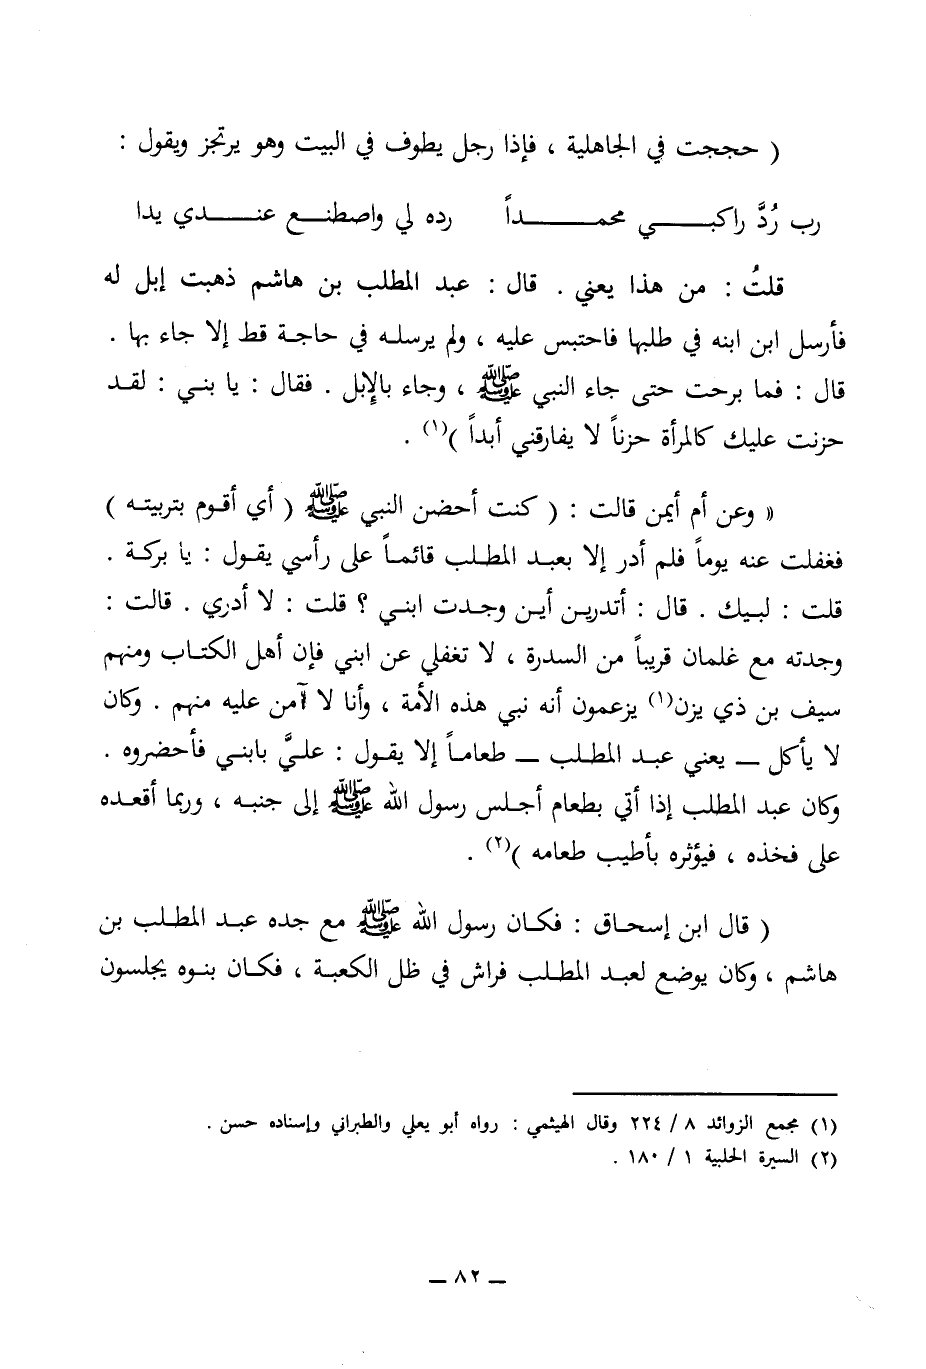 ( حججت في الجاهلية ، فإذا رجل يطوف في البيت وهو يرتجز ويقول :
رب رُدَّ راكبــــي محمـــــداً رده لي واصطنـــع عنـــــدي يدا
قلتُ : من هذا يعني . قال : عبد المطلب بن هاشم ذهبت إبل له
فأرسل ابن ابنه في طلبها فاحتبس عليه ، ولم يرسلـه في حاجـة قط إلا جاء بها .
قال : فما برحت حتى جاء النبي ﷺ ، وجاء بالإبل . فقال : يا بنـي : لقـد
حزنت عليك كالمرأة حزناً لا يفارقني أبداً )(١) .
« وعن أم أيمن قالت : ( كنت أحضن النبي ﷺ ( أي أقوم بتربيتـه )
فغفلت عنه يوماً فلم أدر إلا بعبـد المطـلب قائمـاً على رأسي يقـول : يا بركـة .
قلت : لبـيك . قال : أتدريـن أيـن وجـدت ابنـي ؟ قلت : لا أدري . قالت :
وجدته مع غلمان قريباً من السدرة ، لا تغفلي عن ابني فإن أهل الكتـاب ومنهم
سيف بن ذي يزن(١) يزعمون أنه نبي هذه الأمة ، وأنا لا آمن عليه منهم . وكان
لا يأكل ــ يعني عبـد المطـلب ــ طعامـاً إلا يقـول : علـيَّ بابنـي فأحضروه .
وكان عبد المطلب إذا أتي بطعام أجـلس رسول الله ﷺ إلى جنبـه ، وربما أقعـده
على فخذه ، فيؤثره بأطيب طعامه )(٢) .
( قال ابن إسحـاق : فكـان رسول الله ﷺ مع جده عبـد المطـلب بن
هاشم ، وكان يوضع لعبد المطـلب فراش في ظل الكعبـة ، فكـان بنـوه يجلسون
(١) مجمع الزوائد ٨ / ٢٢٤ وقال الهيثمي : رواه أبو يعلي والطبراني وإسناده حسن .
(٢) السيرة الحلبية ١ / ١٨٠ .
ــ ٨٢ ــ